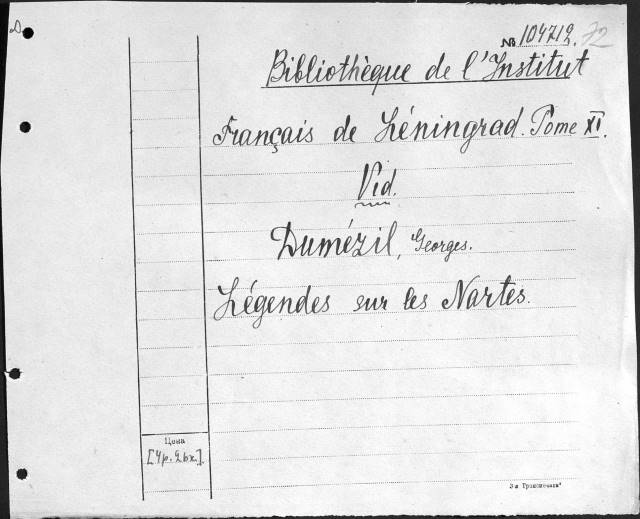 № 104712. 72
Bibliothèque de l'Institut
Français de Léningrad. Tome XI.
Vid.
Dumézil, Georges.
Légendes sur les Nartes.
Цена